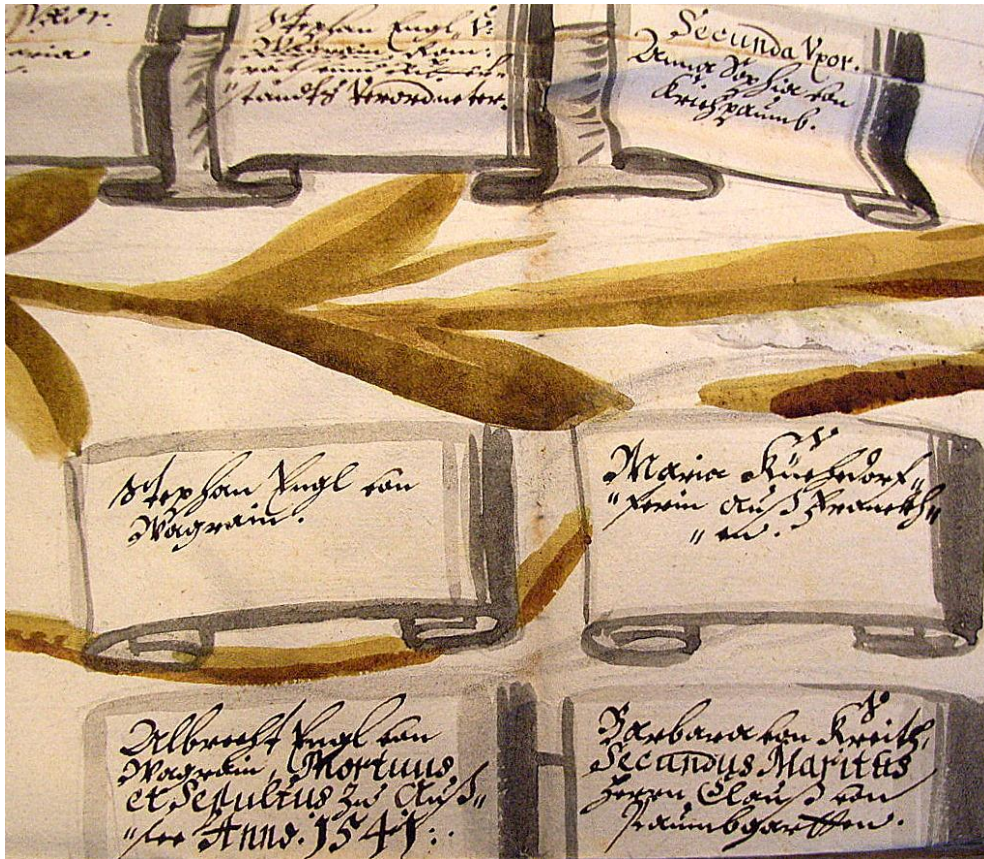 Vxor.
aria
Stephan Engl V:
Wagrain
standts Verordneter.
Secunda Vxor.
Anna Sophia von
Kriechpaumb.
Stephan Engl von
Wagrain.
Maria Küehdorf„
„ferin auß Franckh„
„en.
Albrecht Engl von
Wagrain, Mortuus
et Sepultus zu Auß„
„see Anno. 1541.
Barbara von Kreith,
Secundus Maritus
Herrn Clauß von
Paumbgartten.